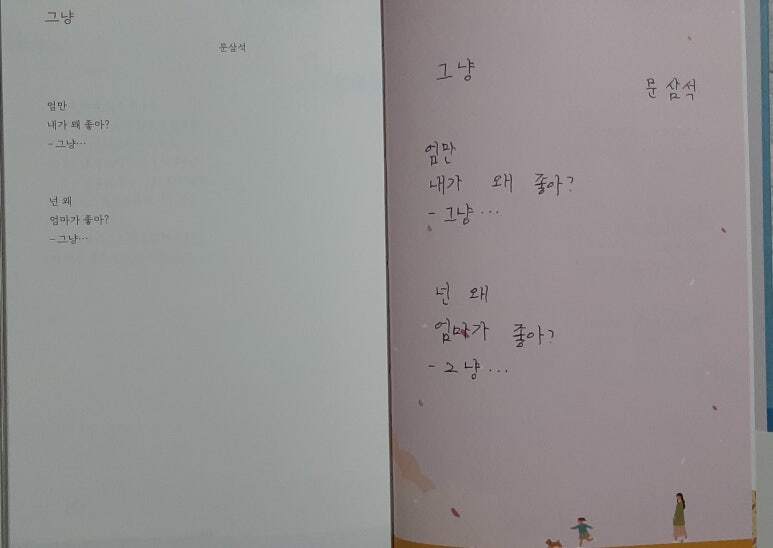 그냥
문삼석
엄만
내가 왜 좋아?
- 그냥…
넌 왜
엄마가 좋아?
- 그냥…
그냥
문 삼석
엄만
내가 왜 좋아?
- 그냥…
넌 왜
엄마가 좋아?
- 그냥…